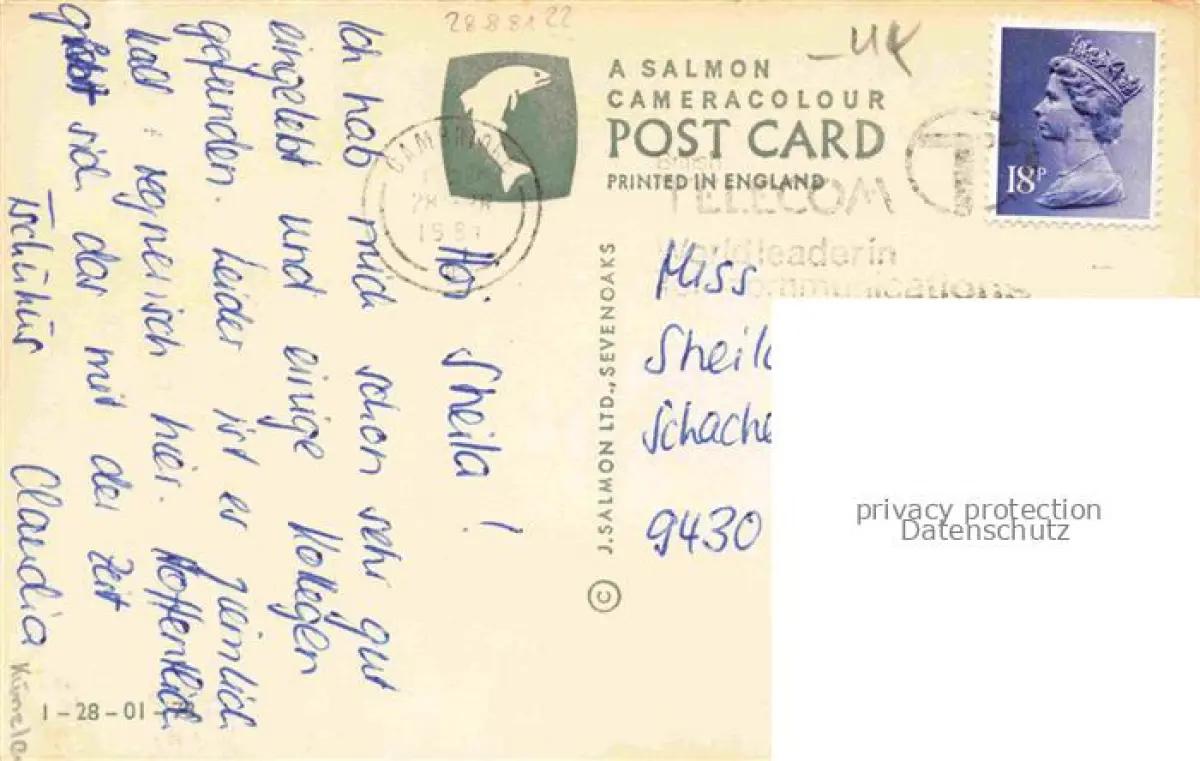 28.8.81 22
A SALMON
CAMERACOLOUR
POST CARD
PRINTED IN ENGLAND
18P
TELECOM
World leader in
communications
CAMBRIDGE
1981
Hoi Sheila!
Ich hab mich schon sehr gut
eingelebt und einige Kollegen
gefunden. Leider ist es ziemlich
kalt + regnerisch hier. Hoffentlich
gibt sich das mit der Zeit
Tschüüs Claudia
1-28-01
© J. SALMON LTD., SEVENOAKS
Miss
Sheil
Schache
9430
privacy protection
Datenschutz